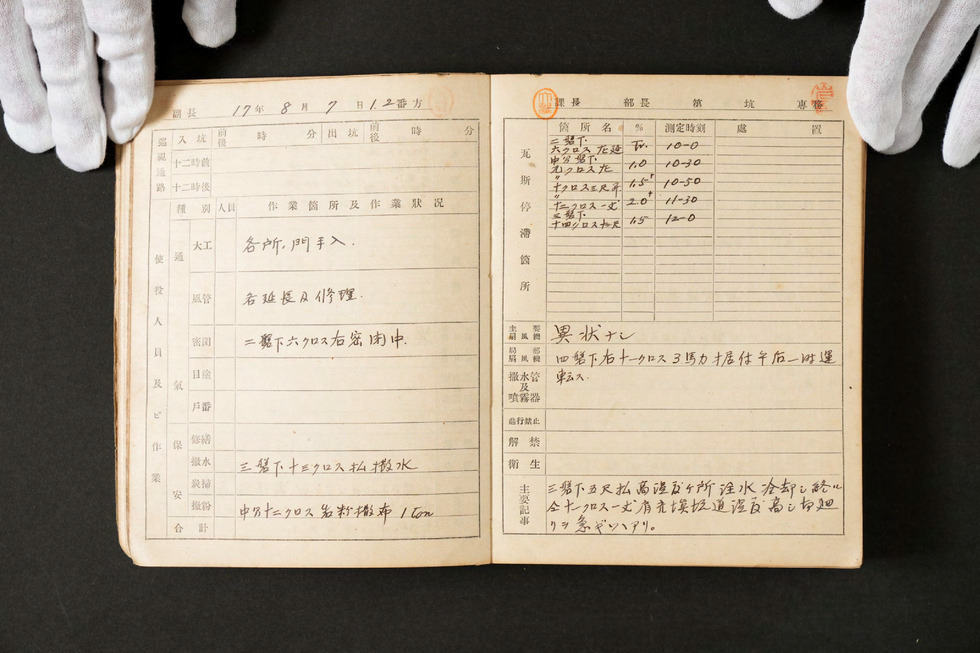 副長 17年 8月 7日 1.2番方
巡視通路 入坑 前後 時 分 出坑 前後 時 分
十二時前
十二時後
使役人員及ビ作業
種別 人員 作業箇所及作業狀況
通氣
大工 各所、門手入.
風管 各延長及修理.
密閉 二盤下六クロス右密閉中.
目塗
戶番
保安
修繕
撒水 三盤下十三クロス払撒水
炭掃
撒粉 中分十二クロス岩粉撒布 1 ton
合計
課長 部長 第 坑 專務
瓦斯停滯箇所
箇所名 % 測定時刻 處置
二盤下
六クロス左延 Tr. 10-0
中分盤下
元クロス左 1.0 10-30
〃
十クロス三尺昇 1.5+ 10-50
〃
十二クロス一丈 2.0+ 11-30
三盤下
十四クロス 1.5 12-0
主要扇風機 異状ナシ
局部扇風機 四盤下右十一クロス3馬力据付午后一時運
撒水管及噴霧器 転ス.
發行禁止
解禁
衛生
主要記事
三盤下五尺払高温度ヶ所注水冷却シ終ル
仝十一クロス一丈肩充填坑道温度高シ切廻
リヲ急ギツヽアリ。